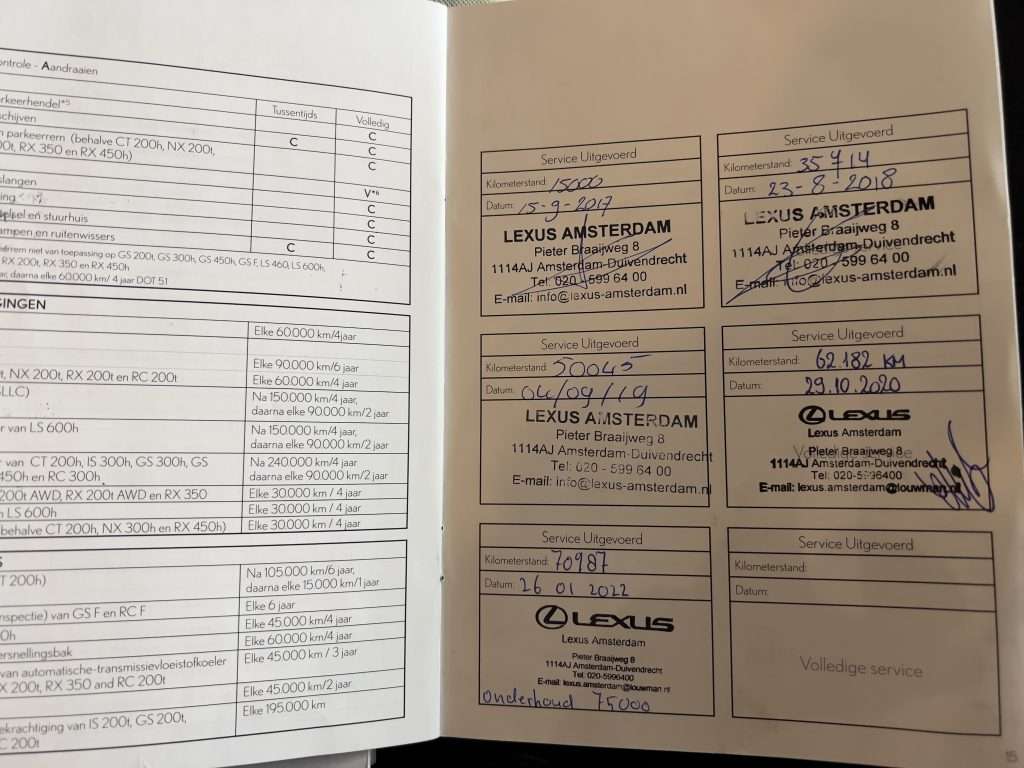 ontrole - Aandraaien
Tussentijds Volledig
rkeerhendel*⁵ C
schijven C C
n parkeerrem (behalve CT 200h, NX 200t, C
00t, RX 350 en RX 450h)
slangen V*⁶
ing C
elsel en stuurhuis C
ampen en ruitenwissers C C
eerrem niet van toepassing op GS 200t, GS 300h, GS 450h, GS F, LS 460, LS 600h,
RX 200t, RX 350 en RX 450h
ar, daarna elke 60.000 km/ 4 jaar DOT 51
GINGEN
Elke 60.000 km/4jaar
Elke 90.000 km/6 jaar
t, NX 200t, RX 200t en RC 200t Elke 60.000 km/4 jaar
SLLC) Na 150.000 km/4 jaar,
daarna elke 90.000 km/2 jaar
r van LS 600h Na 150.000 km/4 jaar,
daarna elke 90.000 km/2 jaar
r van CT 200h, IS 300h, GS 300h, GS Na 240.000 km/4 jaar
450h en RC 300h daarna elke 90.000 km/2 jaar
200t AWD, RX 200t AWD en RX 350 Elke 30.000 km / 4 jaar
n LS 600h Elke 30.000 km / 4 jaar
behalve CT 200h, NX 300h en RX 450h) Elke 30.000 km / 4 jaar
S
T 200h) Na 105.000 km/6 jaar,
daarna elke 15.000 km/1 jaar
inspectie) van GS F en RC F Elke 6 jaar
0h Elke 45.000 km/4 jaar
ersnellingsbak Elke 60.000 km/4 jaar
van automatische-transmissievloeistofkoeler Elke 45.000 km / 3 jaar
X 200t, RX 350 and RC 200t
Elke 45.000 km/2 jaar
ekrachtiging van IS 200t, GS 200t, Elke 195.000 km
C 200t
Service Uitgevoerd
Kilometerstand: 15000
Datum: 15-9-2017
LEXUS AMSTERDAM
Pieter Braaijweg 8
1114AJ Amsterdam-Duivendrecht
Tel: 020 - 599 64 00
E-mail: info@lexus-amsterdam.nl
Service Uitgevoerd
Kilometerstand: 35714
Datum: 23-8-2018
LEXUS AMSTERDAM
Pieter Braaijweg 8
1114AJ Amsterdam-Duivendrecht
Tel: 020 - 599 64 00
E-mail: info@lexus-amsterdam.nl
Service Uitgevoerd
Kilometerstand: 50045
Datum: 04/09/19
LEXUS AMSTERDAM
Pieter Braaijweg 8
1114AJ Amsterdam-Duivendrecht
Tel: 020 - 599 64 00
E-mail: info@lexus-amsterdam.nl
Service Uitgevoerd
Kilometerstand: 62.182 KM
Datum: 29.10.2020
LEXUS
Lexus Amsterdam
Pieter Braaijweg 8
1114AJ Amsterdam-Duivendrecht
Tel: 020-5996400
E-mail: lexus.amsterdam@louwman.nl
Service Uitgevoerd
Kilometerstand: 70987
Datum: 26 01 2022
LEXUS
Lexus Amsterdam
Pieter Braaijweg 8
1114AJ Amsterdam-Duivendrecht
Tel: 020-5996400
E-mail: lexus.amsterdam@louwman.nl
onderhoud 75000
Service Uitgevoerd
Kilometerstand:
Datum:
Volledige service
15